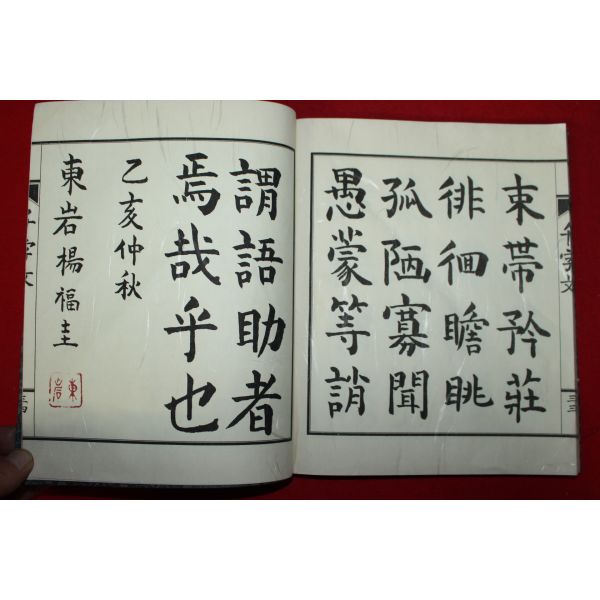 束帶矜莊
徘徊瞻眺
孤陋寡聞
愚蒙等誚
千字文
三三
謂語助者
焉哉乎也
乙亥仲秋
東岩楊福圭
東岩
千字文
三四